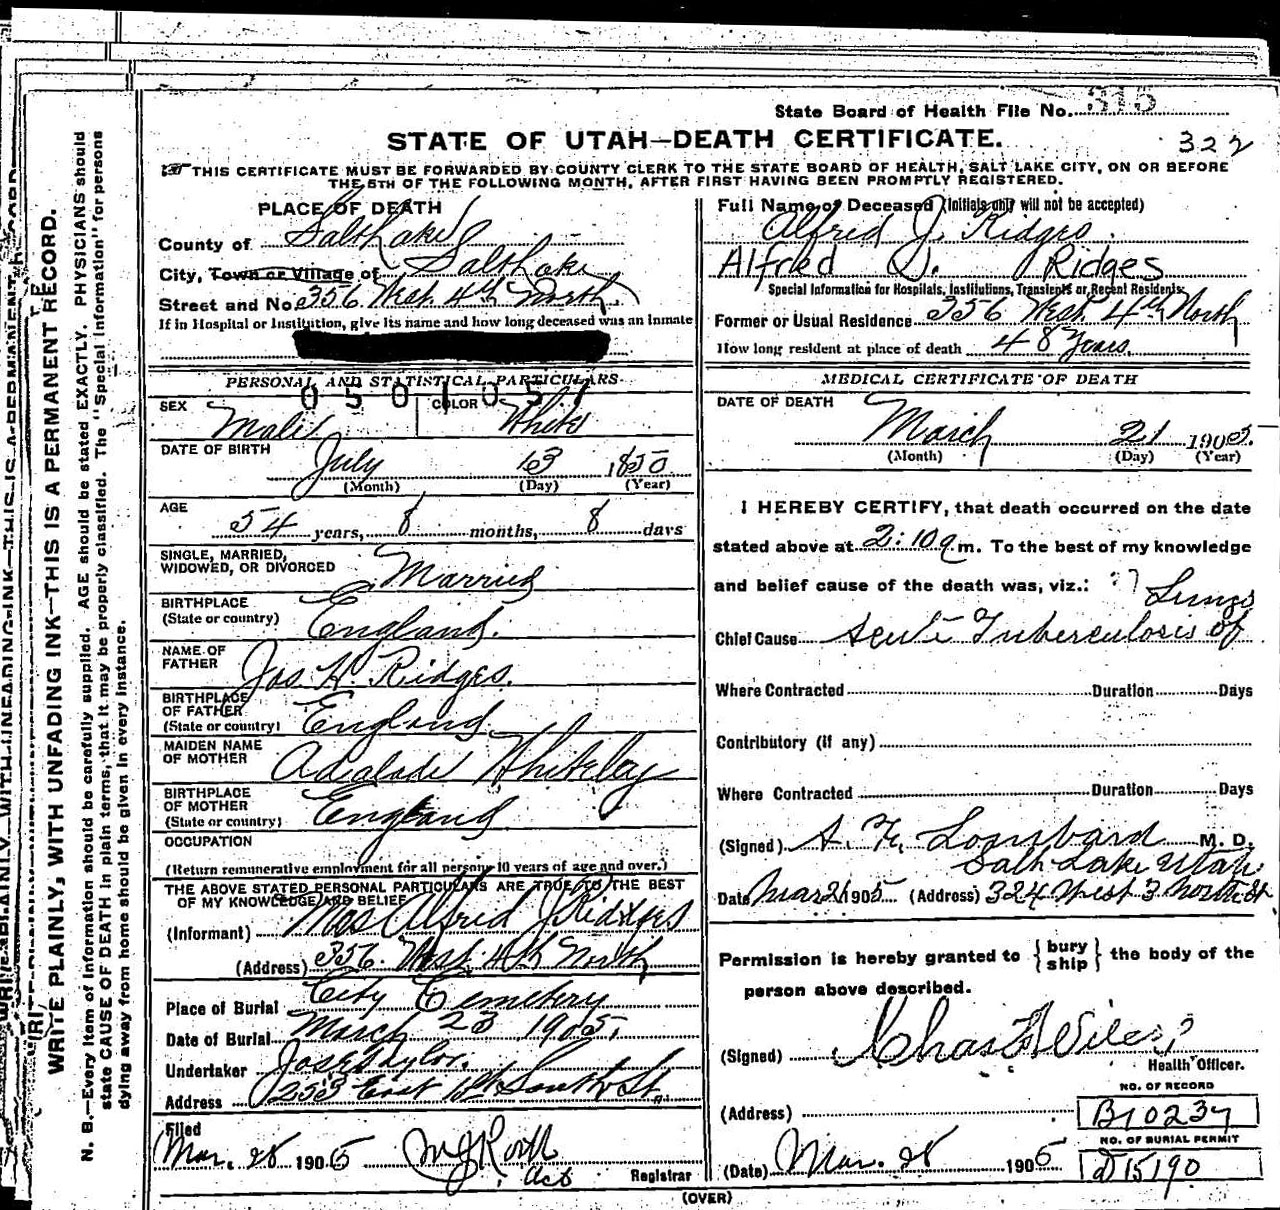 State Board of Health File No. 315
STATE OF UTAH—DEATH CERTIFICATE.
322
THIS CERTIFICATE MUST BE FORWARDED BY COUNTY CLERK TO THE STATE BOARD OF HEALTH, SALT LAKE CITY, ON OR BEFORE
THE 5TH OF THE FOLLOWING MONTH, AFTER FIRST HAVING BEEN PROMPTLY REGISTERED.
WRITE PLAINLY, WITH UNFADING INK—THIS IS A PERMANENT RECORD.
N. B.—Every item of information should be carefully supplied. AGE should be stated EXACTLY. PHYSICIANS should
state CAUSE OF DEATH in plain terms, that it may be properly classified. The "Special Information" for persons
dying away from home should be given in every instance.
PLACE OF DEATH
County of Salt Lake
City, Town or Village of Salt Lake
Street and No. 356 West 4th North
If in Hospital or Institution, give its name and how long deceased was an Inmate
PERSONAL AND STATISTICAL PARTICULARS
0501057
SEX Male COLOR White
DATE OF BIRTH July 13 1850
(Month) (Day) (Year)
AGE 54 years, 8 months, 8 days
SINGLE, MARRIED,
WIDOWED, OR DIVORCED Married
BIRTHPLACE
(State or country) England.
NAME OF
FATHER Jos. H. Ridges.
BIRTHPLACE
OF FATHER
(State or country) England
MAIDEN NAME
OF MOTHER Adalade Whiteley
BIRTHPLACE
OF MOTHER
(State or country) England
OCCUPATION
(Return remunerative employment for all persons 10 years of age and over.)
THE ABOVE STATED PERSONAL PARTICULARS ARE TRUE TO THE BEST
OF MY KNOWLEDGE AND BELIEF
(Informant) Mrs Alfred J Ridges
(Address) 356. West 4th North
Place of Burial City Cemetery
Date of Burial March 23 1905.
Undertaker Jos E Taylor.
Address 253 East 1st South St.
Filed
Mar. 28 1905
Act Registrar
Full Name of Deceased (Initials only will not be accepted)
Alfred J. Ridges.
Alfred J. Ridges
Special Information for Hospitals, Institutions, Transients or Recent Residents:
Former or Usual Residence 356 West 4th North
How long resident at place of death 48 Years.
MEDICAL CERTIFICATE OF DEATH
DATE OF DEATH
March 21 1905.
(Month) (Day) (Year)
I HEREBY CERTIFY, that death occurred on the date
stated above at 2:10 a.m. To the best of my knowledge
and belief cause of the death was, viz.:
Lungs
Chief Cause Acute Tuberculosis of
Where Contracted Duration Days
Contributory (if any)
Where Contracted Duration Days
(Signed) A. H. Lombard M. D.
Salt Lake Utah
Date Mar 21 1905 (Address) 324 West 3 North St
Permission is hereby granted to {bury ship} the body of the
person above described.
(Signed) Chas
Health Officer.
NO. OF RECORD
(Address) B10237
NO. OF BURIAL PERMIT
(Date) Mar. 28 1905 D15190
(OVER)